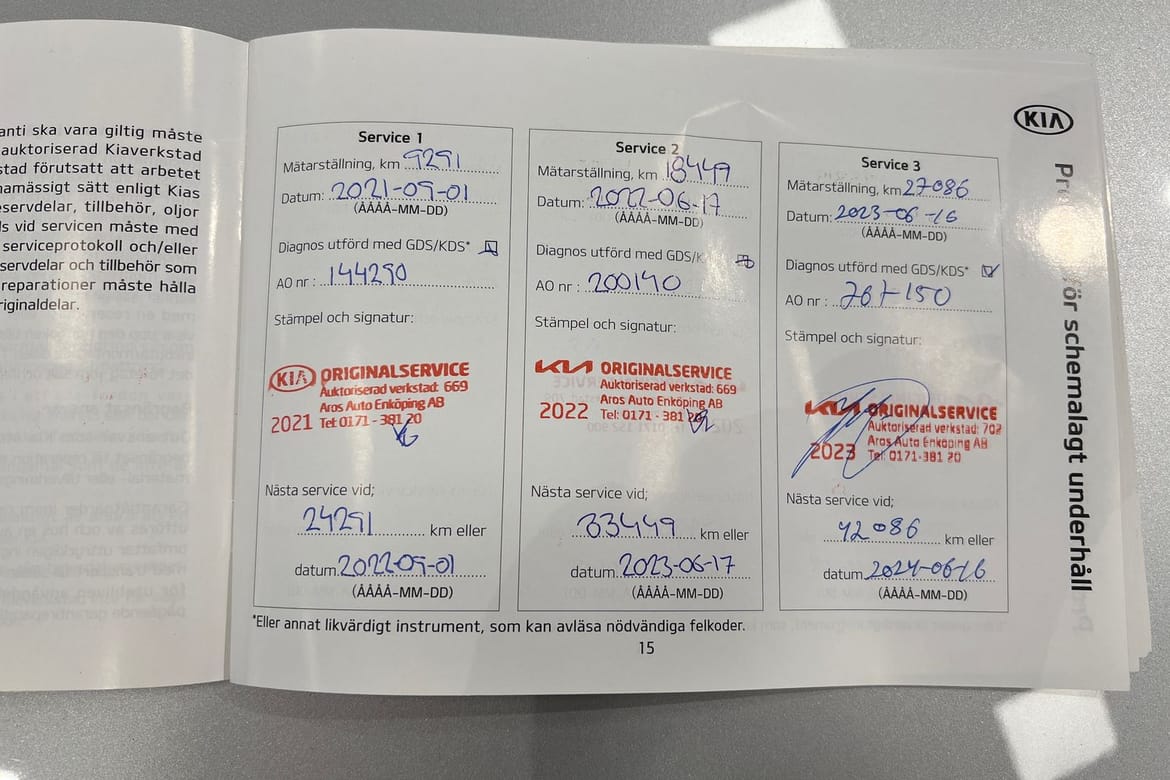 anti ska vara giltig måste
auktoriserad Kiaverkstad
stad förutsatt att arbetet
amässigt sätt enligt Kias
servdelar, tillbehör, oljor
ls vid servicen måste med
serviceprotokoll och/eller
servdelar och tillbehör som
reparationer måste hålla
riginaldelar.
Service 1
Mätarställning, km 9291
Datum: 2021-09-01
(ÅÅÅÅ-MM-DD)
Diagnos utförd med GDS/KDS*
AO nr: 144290
Stämpel och signatur:
KIA ORIGINALSERVICE
Auktoriserad verkstad: 669
Aros Auto Enköping AB
2021 Tel: 0171 - 381 20
Nästa service vid;
24291 km eller
datum 2022-09-01
(ÅÅÅÅ-MM-DD)
Service 2
Mätarställning, km 18449
Datum: 2022-06-17
(ÅÅÅÅ-MM-DD)
Diagnos utförd med GDS/K
AO nr: 200140
Stämpel och signatur:
KIA ORIGINALSERVICE
Auktoriserad verkstad: 669
Aros Auto Enköping AB
2022 Tel: 0171 - 381 20
Nästa service vid;
33449 km eller
datum 2023-06-17
(ÅÅÅÅ-MM-DD)
Service 3
Mätarställning, km 27086
Datum: 2023-06-16
(ÅÅÅÅ-MM-DD)
Diagnos utförd med GDS/KDS*
AO nr:
Stämpel och signatur:
KIA ORIGINALSERVICE
Auktoriserad verkstad: 702
Aros Auto Enköping AB
2023 Tel: 0171-381 20
Nästa service vid;
42086 km eller
datum 2024-06-16
(ÅÅÅÅ-MM-DD)
*Eller annat likvärdigt instrument, som kan avläsa nödvändiga felkoder.
15
KIA
för schemalagt underhåll